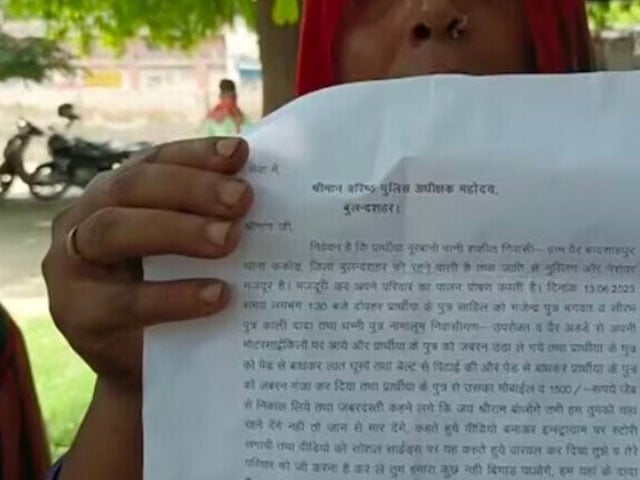 सेवा में,
श्रीमान वरिष्ठ पुलिस अधीक्षक महोदय,
बुलन्दशहर।
श्रीमान जी,
निवेदन है कि प्रार्थीया नूरबानो पत्नी शकील निवासी– ग्राम वैर बादशाहपुर,
थाना ककोड़, जिला बुलन्दशहर की रहने वाली है तथा जाति से मुस्लिम और पेशेवर
मजदूर है। मजदूरी कर अपने परिवार का पालन पोषण करती है। दिनांक 13.06.2023
समय लगभग 1:30 बजे दोपहर प्रार्थीया के पुत्र साहिल को गजेन्द्र पुत्र भगवत व सौरभ
पुत्र काली दादा तथा धन्नी पुत्र नामालूम निवासीगण– उपरोक्त व वैर अडडे से अपनी
मोटरसाईकिलों पर आये और प्रार्थीया के पुत्र को जबरन उठा ले गये तथा प्रार्थीया के पुत्र
को पेड से बांधकर लात घूसों तथा बेल्ट से पिटाई की और पेड से बांधकर प्रार्थीया के पुत्र
को जबरन गंजा कर दिया तथा प्रार्थीया के पुत्र से उसका मोबाईल व 1500/–रूपये जेब
से निकाल लिये तथा जबरदस्ती कहने लगे कि जय श्रीराम बोलोगे तभी हम तुमको यहां
रहने देंगे नही तो जान से मार देंगे, कहते हुये वीडियो बनाकर इन्स्ट्राग्राम पर स्टोरी
लगायी तथा वीडियो को सोशल साईड्स पर यह कहते हुये वायरल कर दिया तुझे व तेरे
परिवार को जो करना है कर ले तुम हमारा कुछ नही बिगाड पाओगे, हम यहां के दादा